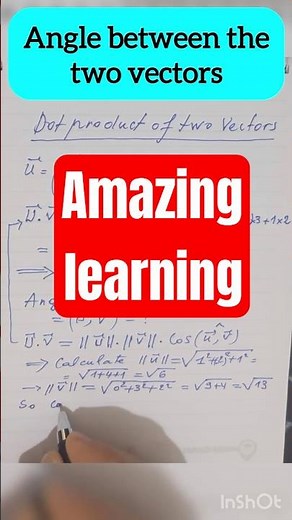 Angle between the
two vectors
Dot product of two Vectors
U⃗ =
Amazing
learning
U⃗.V⃗
x3+1x2
=
⟹
Ang
= (u⃗, v⃗) = ?
U⃗.V⃗ = ||U⃗||.||V⃗||. Cos(u⃗,v⃗)
⟹ Calculate ||u⃗|| = √1²+2²+1² =
= √1+4+1 = √6
→ ||V⃗|| = √0²+3²+2² = √9+4 = √13
So
InShOt